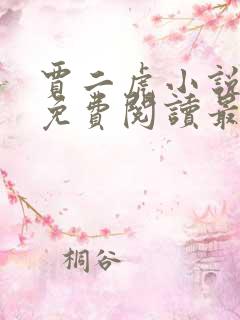 賈二虎小說
免費閱讀最
桐谷